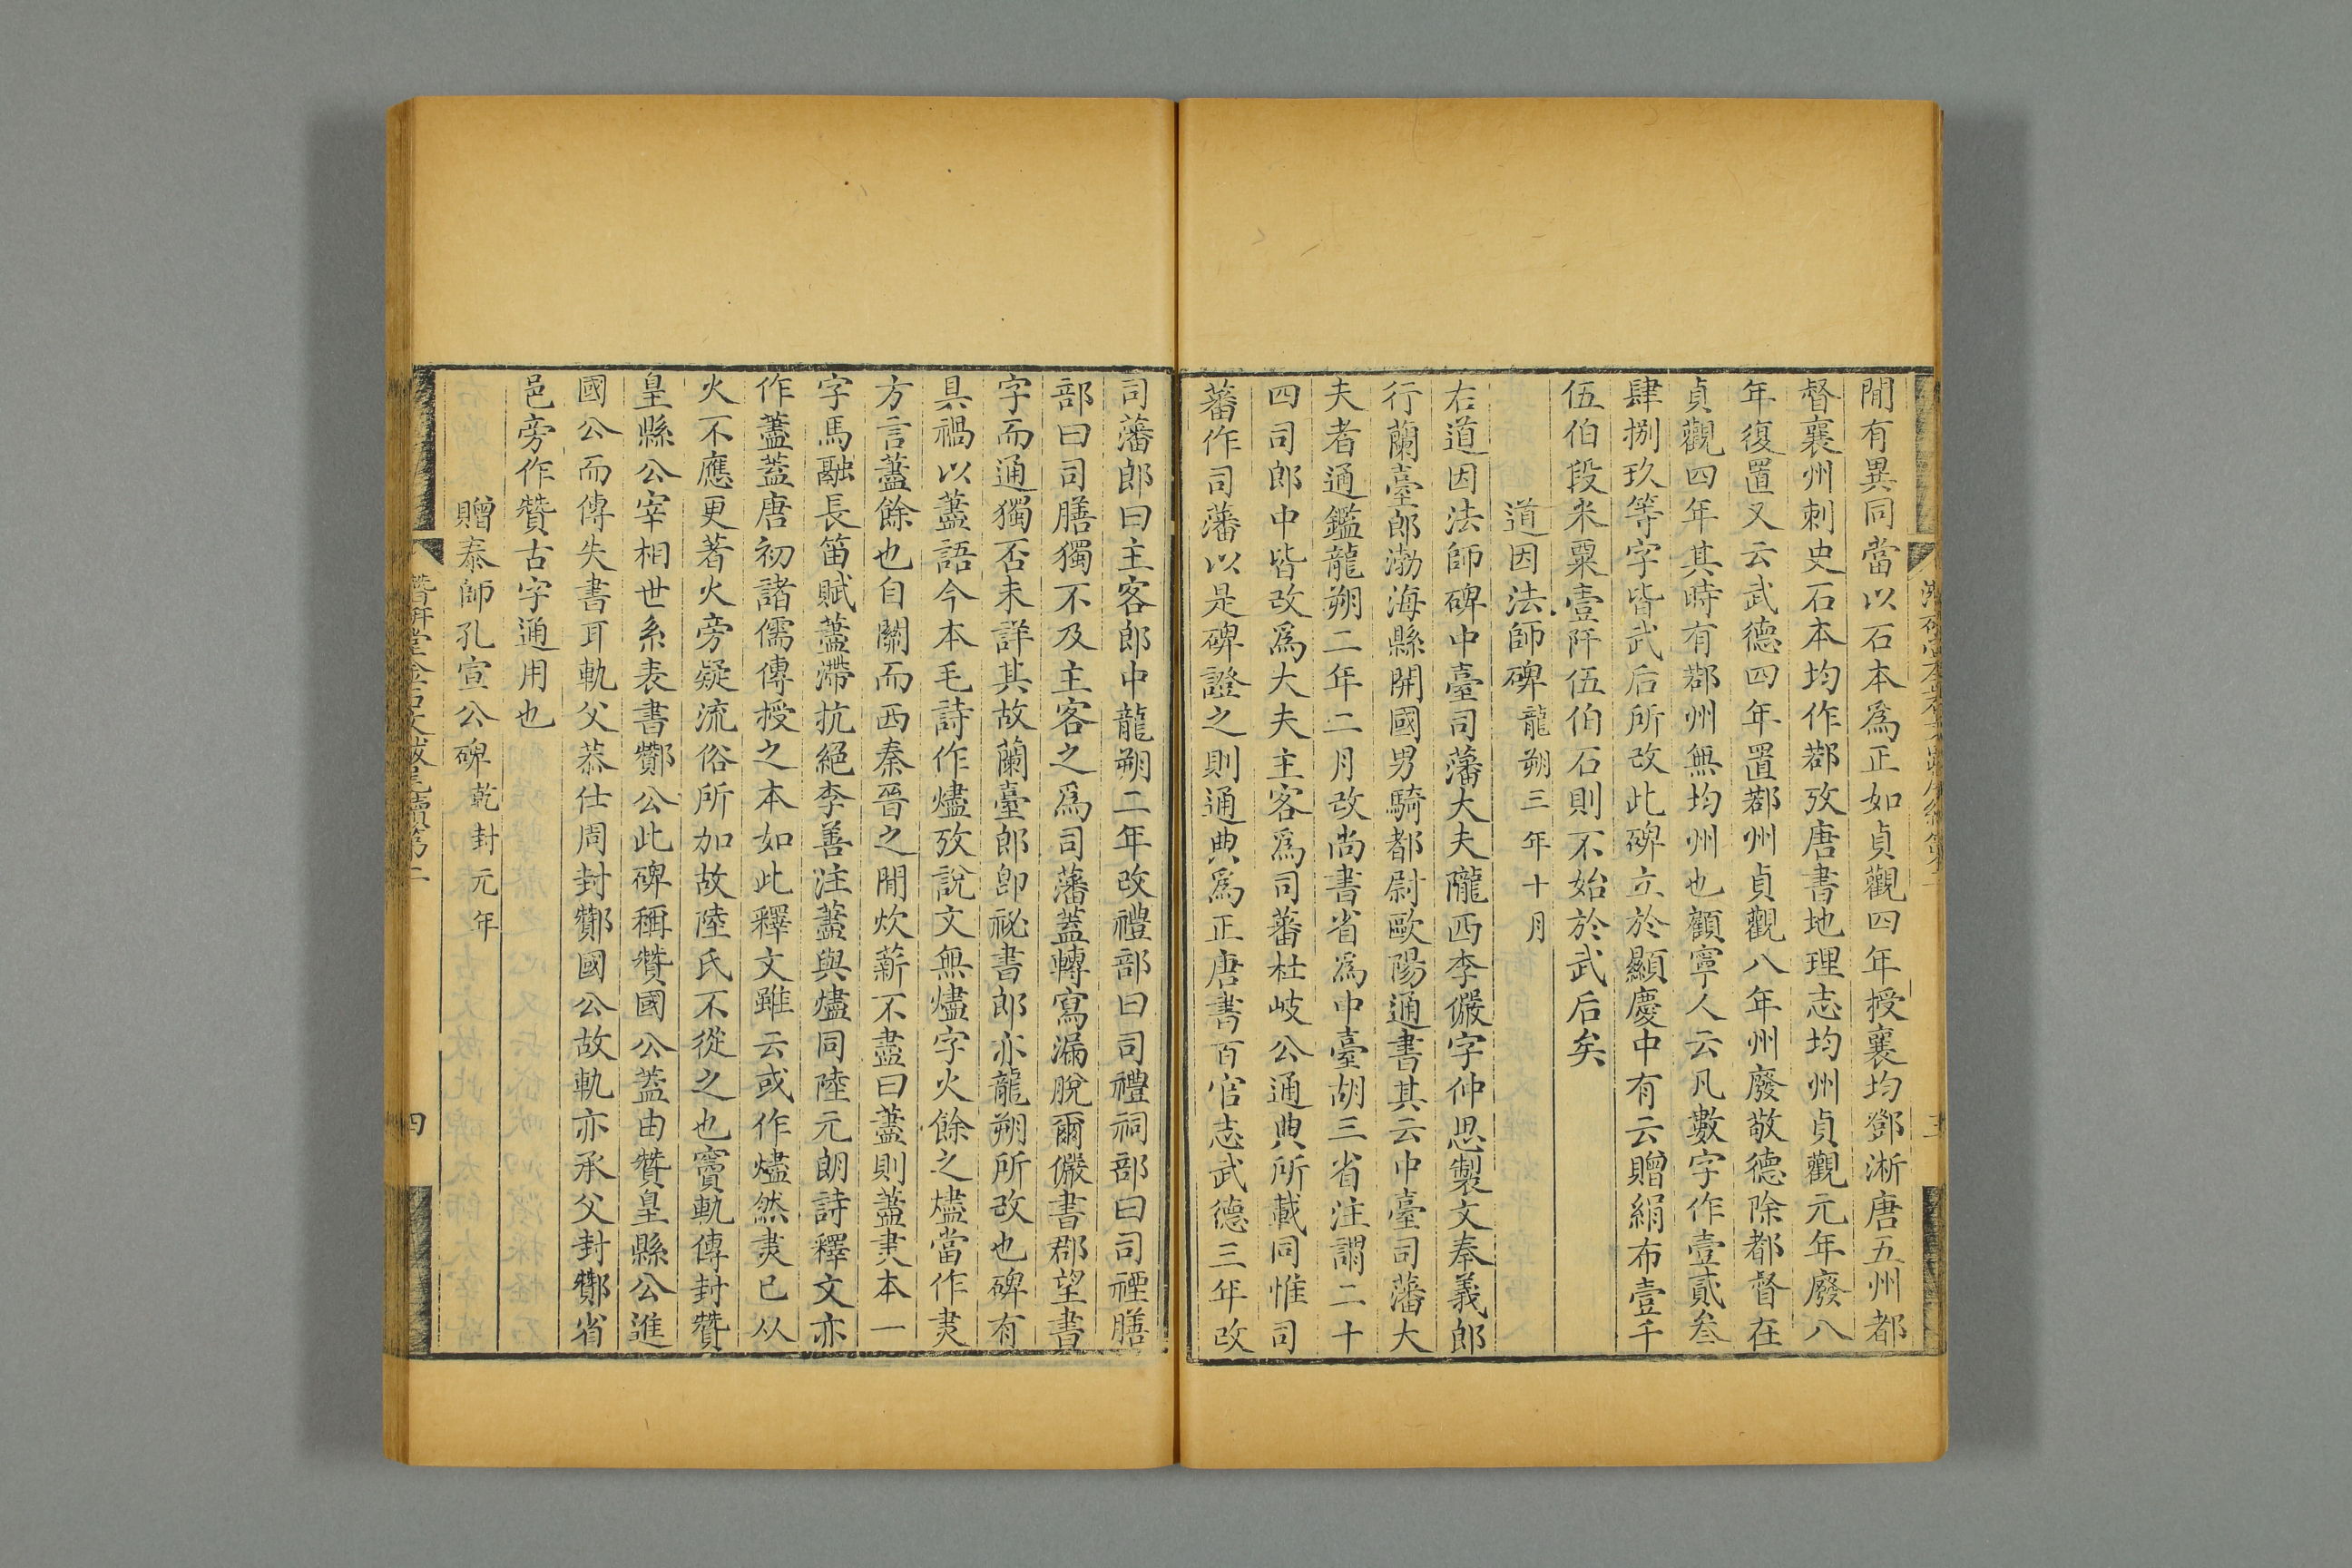 閒有異同當以石本爲正如貞觀四年授襄均鄧淅唐五州都
督襄州刺史石本均作鄀攷唐書地理志均州貞觀元年廢八
年復置又云武德四年置鄀州貞觀八年州廢敬德除都督在
貞觀四年其時有鄀州無均州也顧寧人云凡數字作壹貳叁
肆捌玖等字皆武后所改此碑立於顯慶中有云贈絹布壹千
伍伯段米粟壹阡伍伯石則不始於武后矣
道因法師碑龍朔三年十月
右道因法師碑中臺司藩大夫隴西李儼字仲思製文奉義郎
行蘭臺郎渤海縣開國男騎都尉歐陽通書其云中臺司藩大
夫者通鑑龍朔二年二月改尚書省爲中臺胡三省注謂二十
四司郎中皆改爲大夫主客爲司蕃杜岐公通典所載同惟司
蕃作司藩以是碑證之則通典爲正唐書百官志武德三年改
司藩郎曰主客郎中龍朔二年改禮部曰司禮祠部曰司禋膳
部曰司膳獨不及主客之爲司藩蓋轉寫漏脫爾儼書郡望書
字而通獨否未詳其故蘭臺郎卽祕書郎亦龍朔所改也碑有
具禍以藎語今本毛詩作燼攷說文無燼字火餘之燼當作㶳
方言藎餘也自關而西秦晉之閒炊薪不盡曰藎則藎㶳本一
字馬融長笛賦藎滯抗絕李善注藎與燼同陸元朗詩釋文亦
作藎蓋唐初諸儒傳授之本如此釋文雖云或作燼然㶳已从
火不應更著火旁疑流俗所加故陸氏不從之也竇軌傳封贊
皇縣公宰相世系表書酇公此碑稱贊國公蓋由贊皇縣公進
國公而傳失書耳軌父恭仕周封酇國公故軌亦承父封酇省
邑旁作贊古字通用也
贈泰師孔宣公碑乾封元年
潛研堂金石文跋尾續第二
四